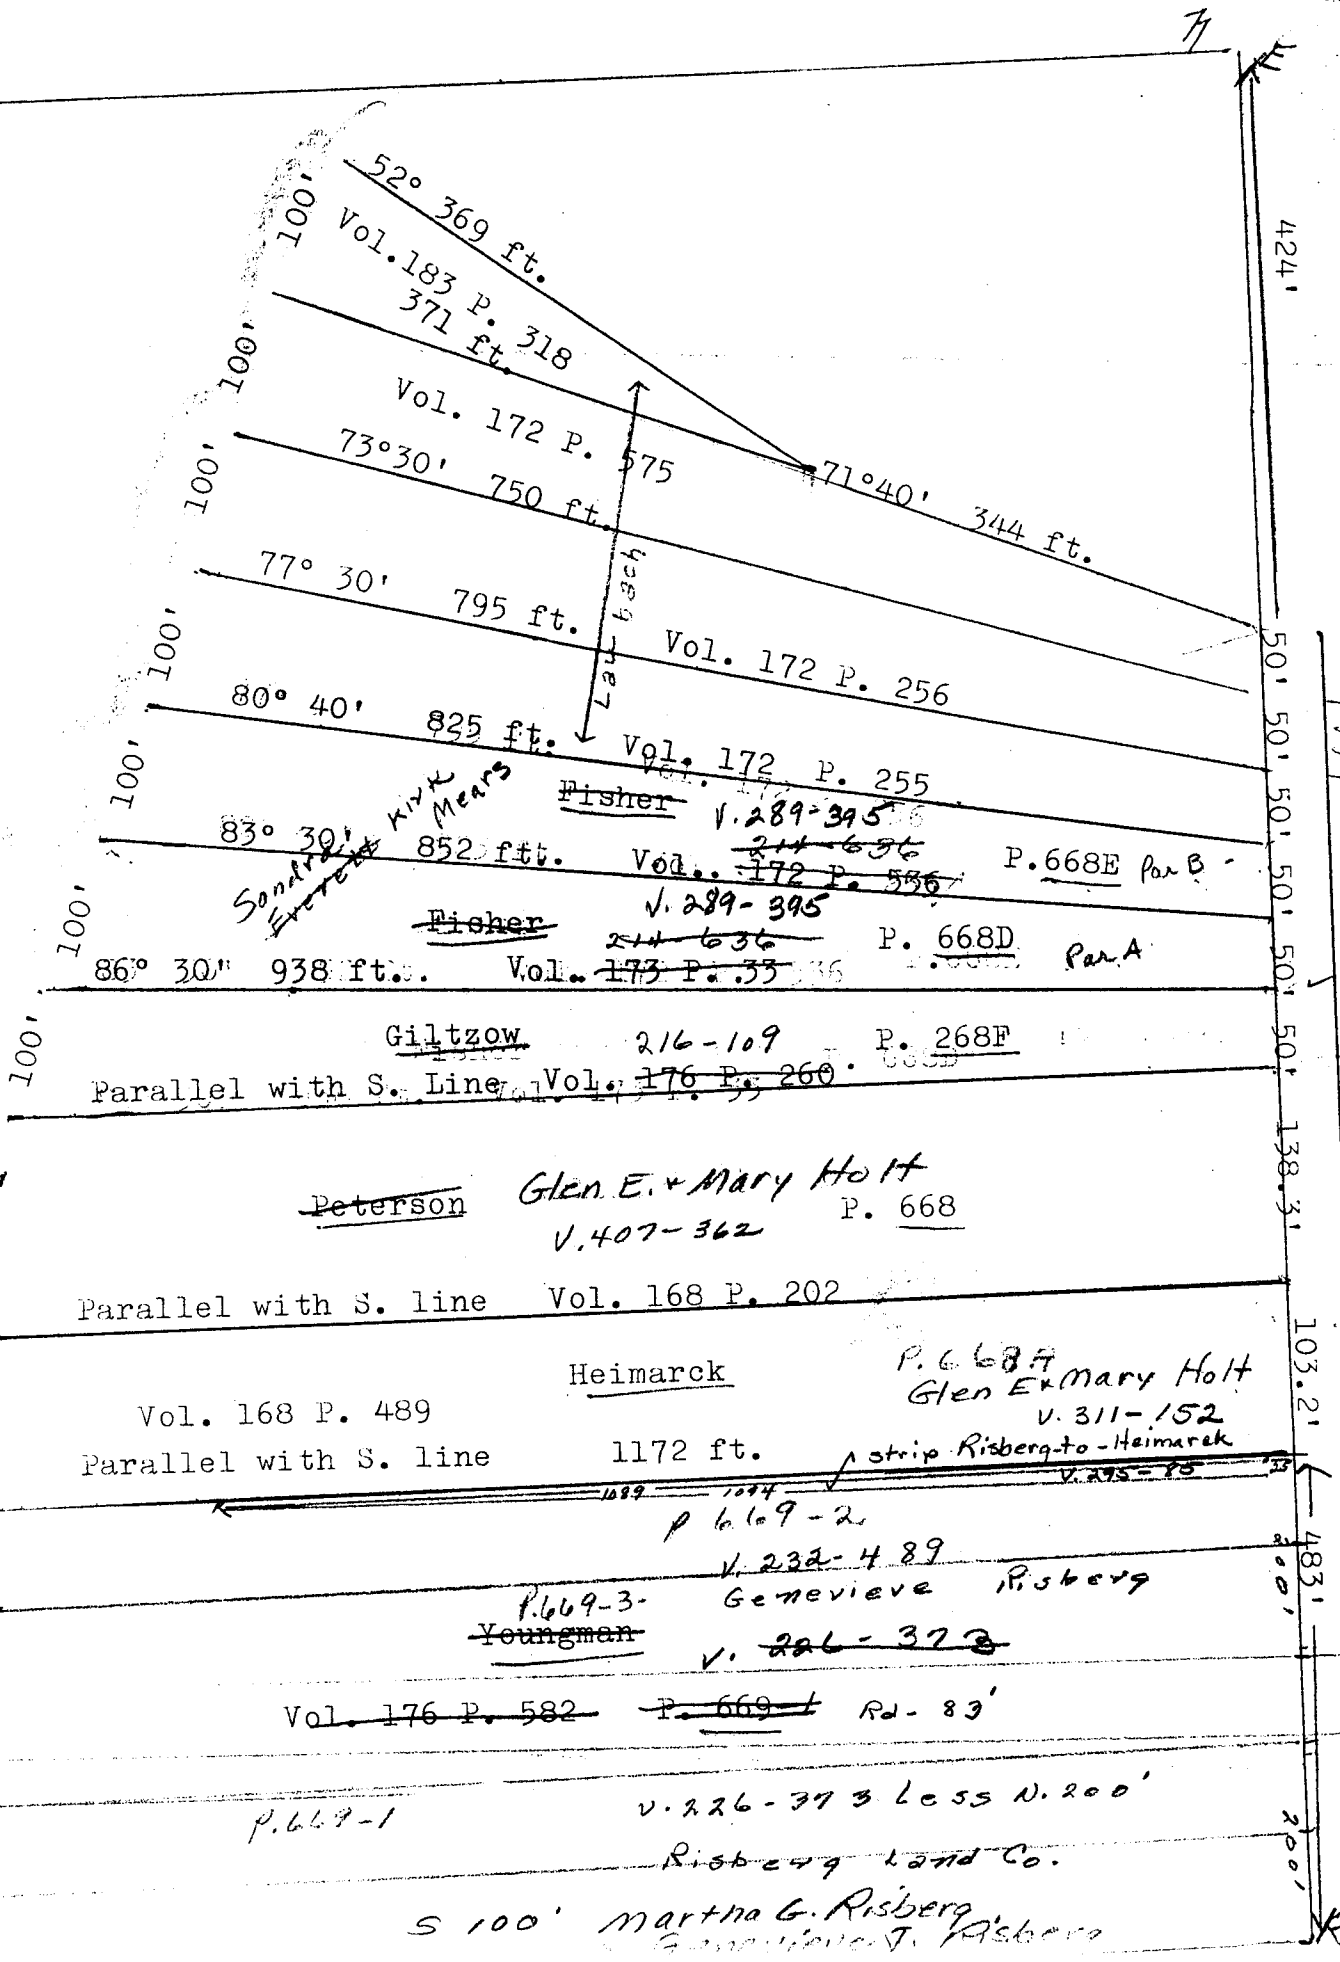 424'
100'
52° 369 ft.
Vol.183 P. 318
371 ft.
100'
Vol. 172 P. 575
71°40' 344 ft.
100'
73°30' 750 ft.
50'
77° 30' 795 ft.
Vol. 172 P. 256
50'
100'
80° 40' 825 ft.
Vol. 172 P. 255
50'
100'
Kirk
Mears
Fisher
V. 289-395
214-636
83° 30' 852 ft.
Vol. 172 P. 536
P. 668E Par B
50'
Sandra
Everett
100'
Fisher
V. 289-395
214-636
P. 668D Par A
50'
86° 30" 938 ft.
Vol. 173 P. 33
100'
Giltzow 216-109 P. 268F
50'
Parallel with S. Line Vol. 176 P. 260
138.3'
Peterson Glen E. + Mary Holt
V. 407-362 P. 668
Parallel with S. line Vol. 168 P. 202
103.2'
Heimarck P. 668A
Glen E + Mary Holt
Vol. 168 P. 489 V. 311-152
Parallel with S. line 1172 ft. strip Risberg-to-Heimarck
V. 295-85 33
1089 1094
P 669-2
483'
V. 232-489
Genevieve Risberg
200'
P.669-3-
Youngman V. 226-373
Vol. 176 P. 582 P. 669-1 Rd - 83'
P.669-1 V.226-373 Less N. 200'
Risberg Land Co.
200'
S 100' Martha G. Risberg
Genevieve J. Risberg